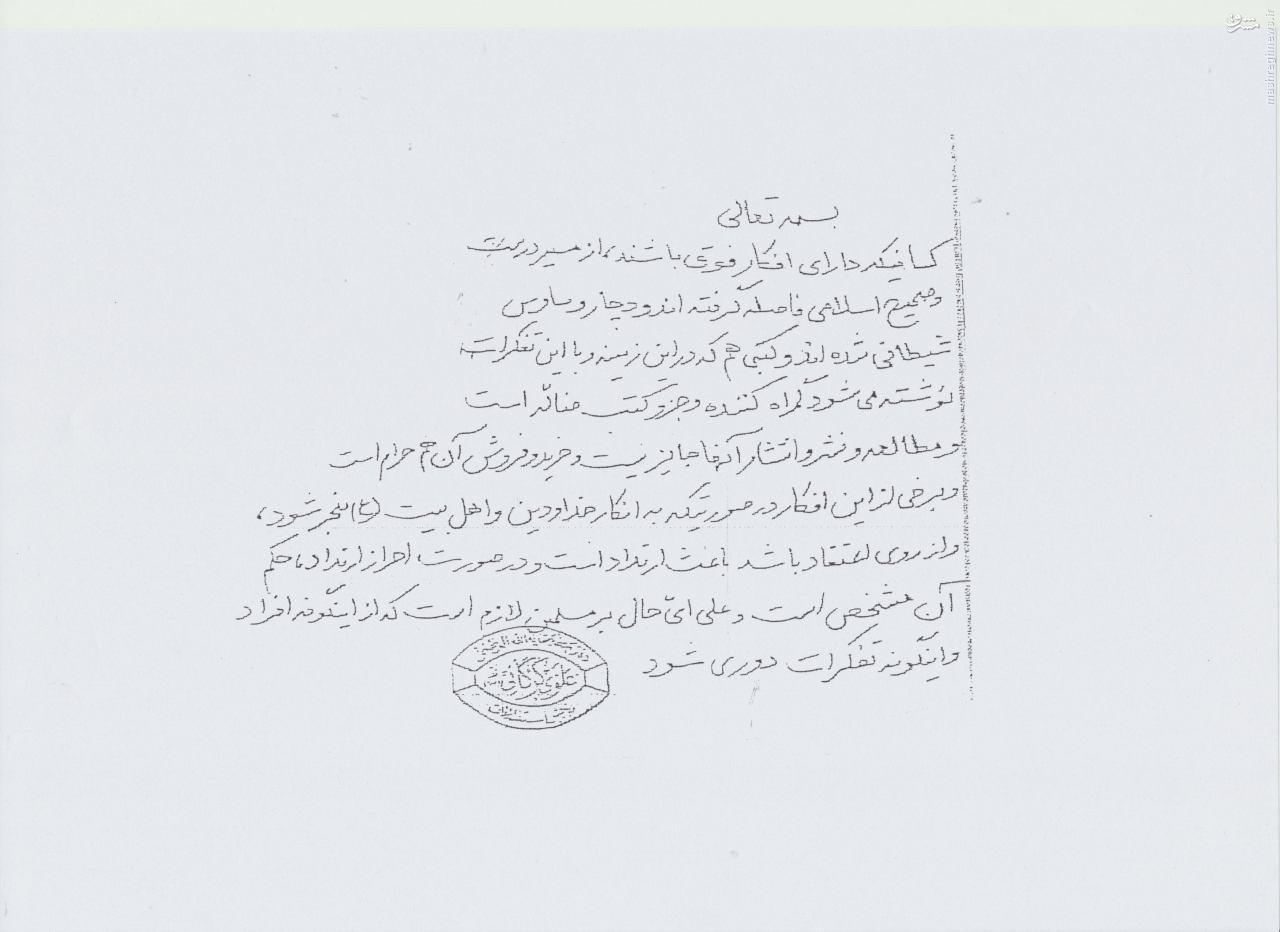 مشرق
mashreghnews.ir
بسمه تعالی
کسانیکه دارای افکار فوق باشند، از مسیر درست
و صحیح اسلامی فاصله گرفته اند و دچار وساوس
شیطانی شده اند و کتبی هم که در این زمینه و با این تفکرات
نوشته می شود گمراه کننده و جزو کتب ضالّه است
و مطالعه و نشر و انتشار آنها جایز نیست و خرید و فروش آن هم حرام است
و برخی از این افکار در صورتیکه به انکار خدا و دین و اهل بیت (ع) منجر شود،
و از روی اعتقاد باشد باعث ارتداد است و در صورت احراز ارتداد، حکم
آن مشخص است و علی ایّ حال بر مسلمین لازم است که از اینگونه افراد
و اینگونه تفکرات دوری شود
علوی گرگانی